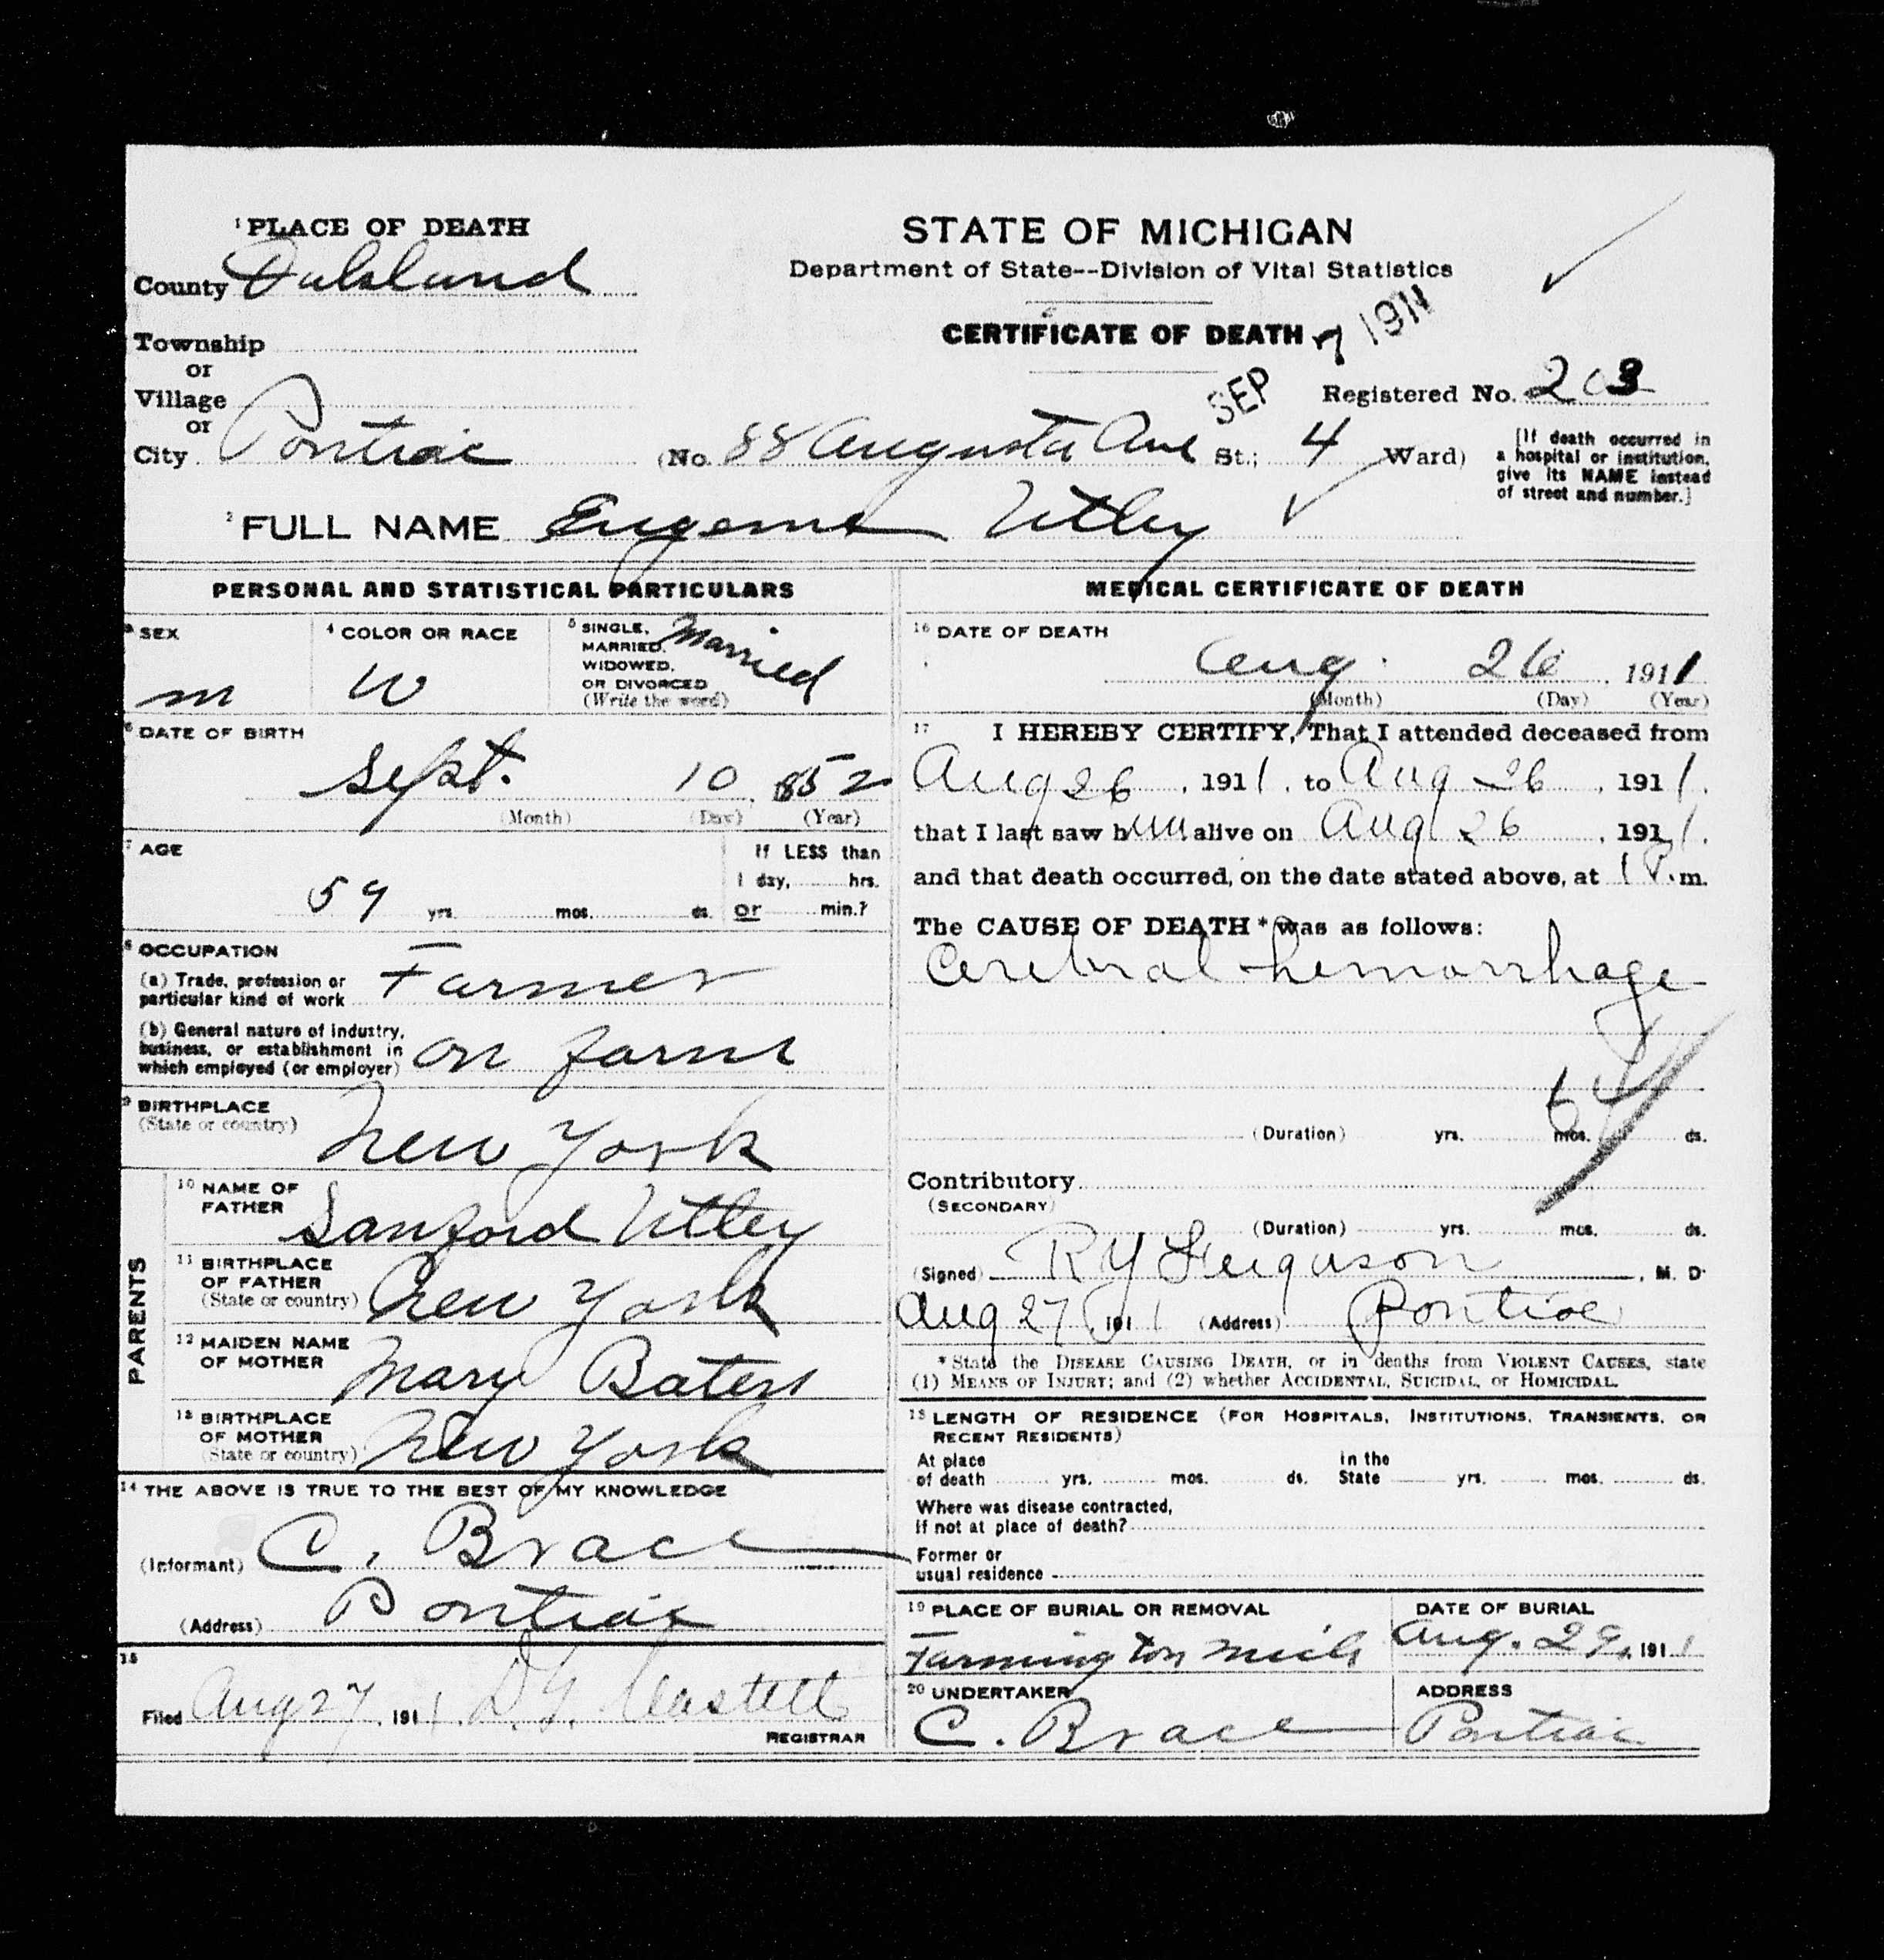 1 PLACE OF DEATH
County Oakland
Township
or
Village
or
City Pontiac
STATE OF MICHIGAN
Department of State--Division of Vital Statistics
CERTIFICATE OF DEATH
SEP 7 1911
Registered No. 203
(No. 88 Augusta Ave St.; 4 Ward)
[If death occurred in
a hospital or institution,
give its NAME instead
of street and number.]
2 FULL NAME Eugene Utley
PERSONAL AND STATISTICAL PARTICULARS
3 SEX
m
4 COLOR OR RACE
W
5 SINGLE,
MARRIED,
WIDOWED,
OR DIVORCED
(Write the word)
Married
6 DATE OF BIRTH
Sept. 10 1852
(Month) (Day) (Year)
7 AGE
59 yrs. mos. ds.
If LESS than
1 day, hrs.
or min.?
8 OCCUPATION
(a) Trade, profession or
particular kind of work Farmer
(b) General nature of industry,
business, or establishment in
which employed (or employer) on farm
9 BIRTHPLACE
(State or country) New York
PARENTS
10 NAME OF
FATHER Sanford Utley
11 BIRTHPLACE
OF FATHER
(State or country) New York
12 MAIDEN NAME
OF MOTHER Mary Bates
13 BIRTHPLACE
OF MOTHER
(State or country) New York
14 THE ABOVE IS TRUE TO THE BEST OF MY KNOWLEDGE
(Informant) C. Brace
(Address) Pontiac
15
Filed Aug 27, 1911. REGISTRAR
MEDICAL CERTIFICATE OF DEATH
16 DATE OF DEATH
Aug. 26, 1911
(Month) (Day) (Year)
17 I HEREBY CERTIFY, That I attended deceased from
Aug 26, 1911, to Aug 26, 1911.
that I last saw him alive on Aug 26, 1911.
and that death occurred, on the date stated above, at 1 P.m.
The CAUSE OF DEATH* was as follows:
Cerebral hemorrhage
64
(Duration) yrs. mos. ds.
Contributory
(SECONDARY)
(Duration) yrs. mos. ds.
(Signed) R Y Ferguson, M. D.
Aug 27, 1911 (Address) Pontiac
* State the DISEASE CAUSING DEATH, or in deaths from VIOLENT CAUSES, state
(1) MEANS OF INJURY; and (2) whether ACCIDENTAL, SUICIDAL, or HOMICIDAL.
18 LENGTH OF RESIDENCE (FOR HOSPITALS, INSTITUTIONS, TRANSIENTS, OR
RECENT RESIDENTS)
At place
of death yrs. mos. ds.
in the
State yrs. mos. ds.
Where was disease contracted,
If not at place of death?
Former or
usual residence
19 PLACE OF BURIAL OR REMOVAL
Farmington Mich
DATE OF BURIAL
Aug. 29, 1911
20 UNDERTAKER
C. Brace
ADDRESS
Pontiac